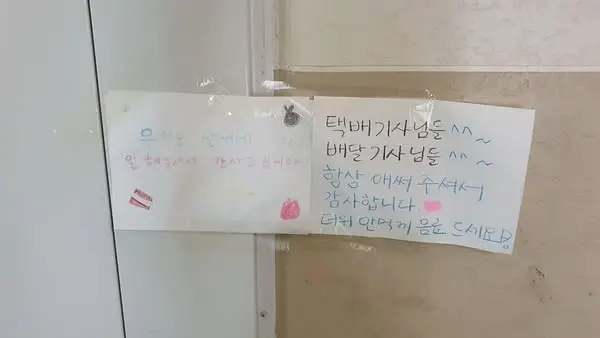 일 하셔서 감사드립니다
택배기사님들 ^^ ~
배달기사님들 ^^ ~
항상 애써 주셔서
감사합니다. ♥
더위 안먹게 음료 드세요!